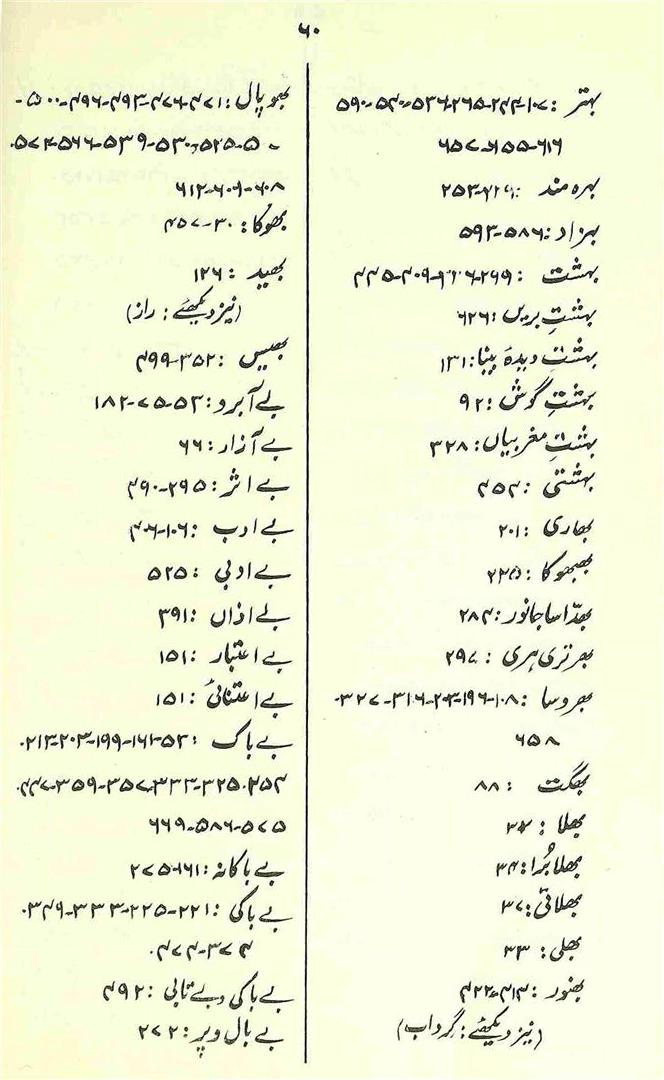 ۶۰
بہتر : ۱۰۷-۲۴۴-۲۶۵-۵۳۶-۵۴۰-۵۹۰
۶۱۶-۶۵۵-۶۵۷
بہرہ مند :
بہزاد : ۵۸۶-۵۹۳
بہشت :
بہشتِ بریں : ۶۲۶
بہشتِ دیدۂ بینا : ۱۳۱
بہشتِ گوش : ۹۲
بہشتِ مغربیاں : ۳۲۸
بہشتی : ۴۵۴
بھاری : ۲۰۱
بھبھوکا : ۲۳۵
بھدّا سا جانور : ۲۸۴
بھرتری ہری : ۲۹۷
بھروسا : ۱۰۸-۱۹۶-۲۰۳-۳۱۶-۳۲۷-
۶۵۸
بھگت : ۸۸
بھلا : ۳۴
بھلا بُرا : ۳۴
بھلائی : ۳۷
بھلی : ۳۳
بھنور : ۴۱۳-۴۲۲
(نیز دیکھئے : گرداب)
بھوپال : ۴۷۱-۴۷۶-۴۹۳-۴۹۶-۵۰۰-
۵۲۵-۵۳۰-۵۳۹-۵۶۶-۵۷۴-
۶۰۸-۶۰۹-۶۱۲
بھوکا : ۳۰-۴۵۷
بھید : ۱۲۶
(نیز دیکھئے : راز)
بھیس : ۳۵۲-۴۹۹
بے آبرو : ۵۳-۷۵-۱۸۲
بے آزار : ۶۶
بے اثر : ۲۹۵-۴۹۰
بے ادب : ۱۰۶-۴۰۶
بے ادبی : ۵۲۵
بے اذاں : ۳۹۱
بے اعتبار : ۱۵۱
بے اعتنائی : ۱۵۱
بے باک : ۵۳-۱۶۱-۱۹۹-۲۰۳-۲۱۳-
۲۵۴-۳۲۵-۳۳۳-۳۵۷-۳۵۹-۴۴۷-
۵۷۵-۵۸۶-۶۶۹
بے باکانہ : ۱۶۱-۲۷۵
بے باکی : ۲۲۱-۲۲۵-۳۳۳-۳۴۹-
۳۷۴-۴۷۴-
بے باکی و بے تابی : ۴۹۲
بے بال و پر : ۲۷۲